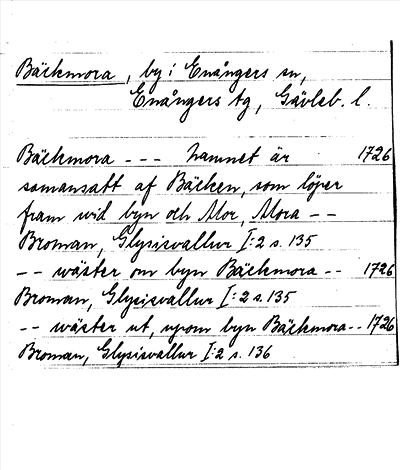 Bäckmora, by i Enångers sn,
Enångers tg, Gävleb. l.
Bäckmora --- namnet är 1726
samansatt af Bäcken, som löper
fram wid byn och Mor, Mora --
Broman, Glysisvallur I:2 s. 135
-- wäster om byn Bäckmora -- 1726
Broman, Glysisvallur I:2 s. 135
-- wäster ut, uprom byn Bäckmora -- 1726
Broman, Glysisvallur I:2 s. 136